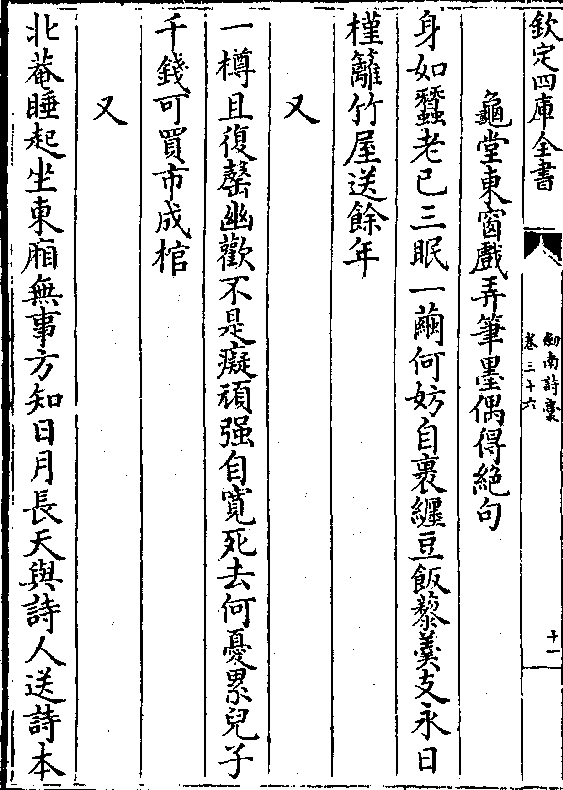 欽定四庫全書
劍南詩稾
卷三十六
十一
龜堂東窗戲弄筆墨偶得絕句
身如蠶老已三眠一繭何妨自裹纏豆飯藜羹支永日
槿籬竹屋送餘年
又
一樽且復罄幽歡不是癡頑强自寛死去何憂累兒子
千錢可買市成棺
又
北菴睡起坐東廂無事方知日月長天與詩人送詩本